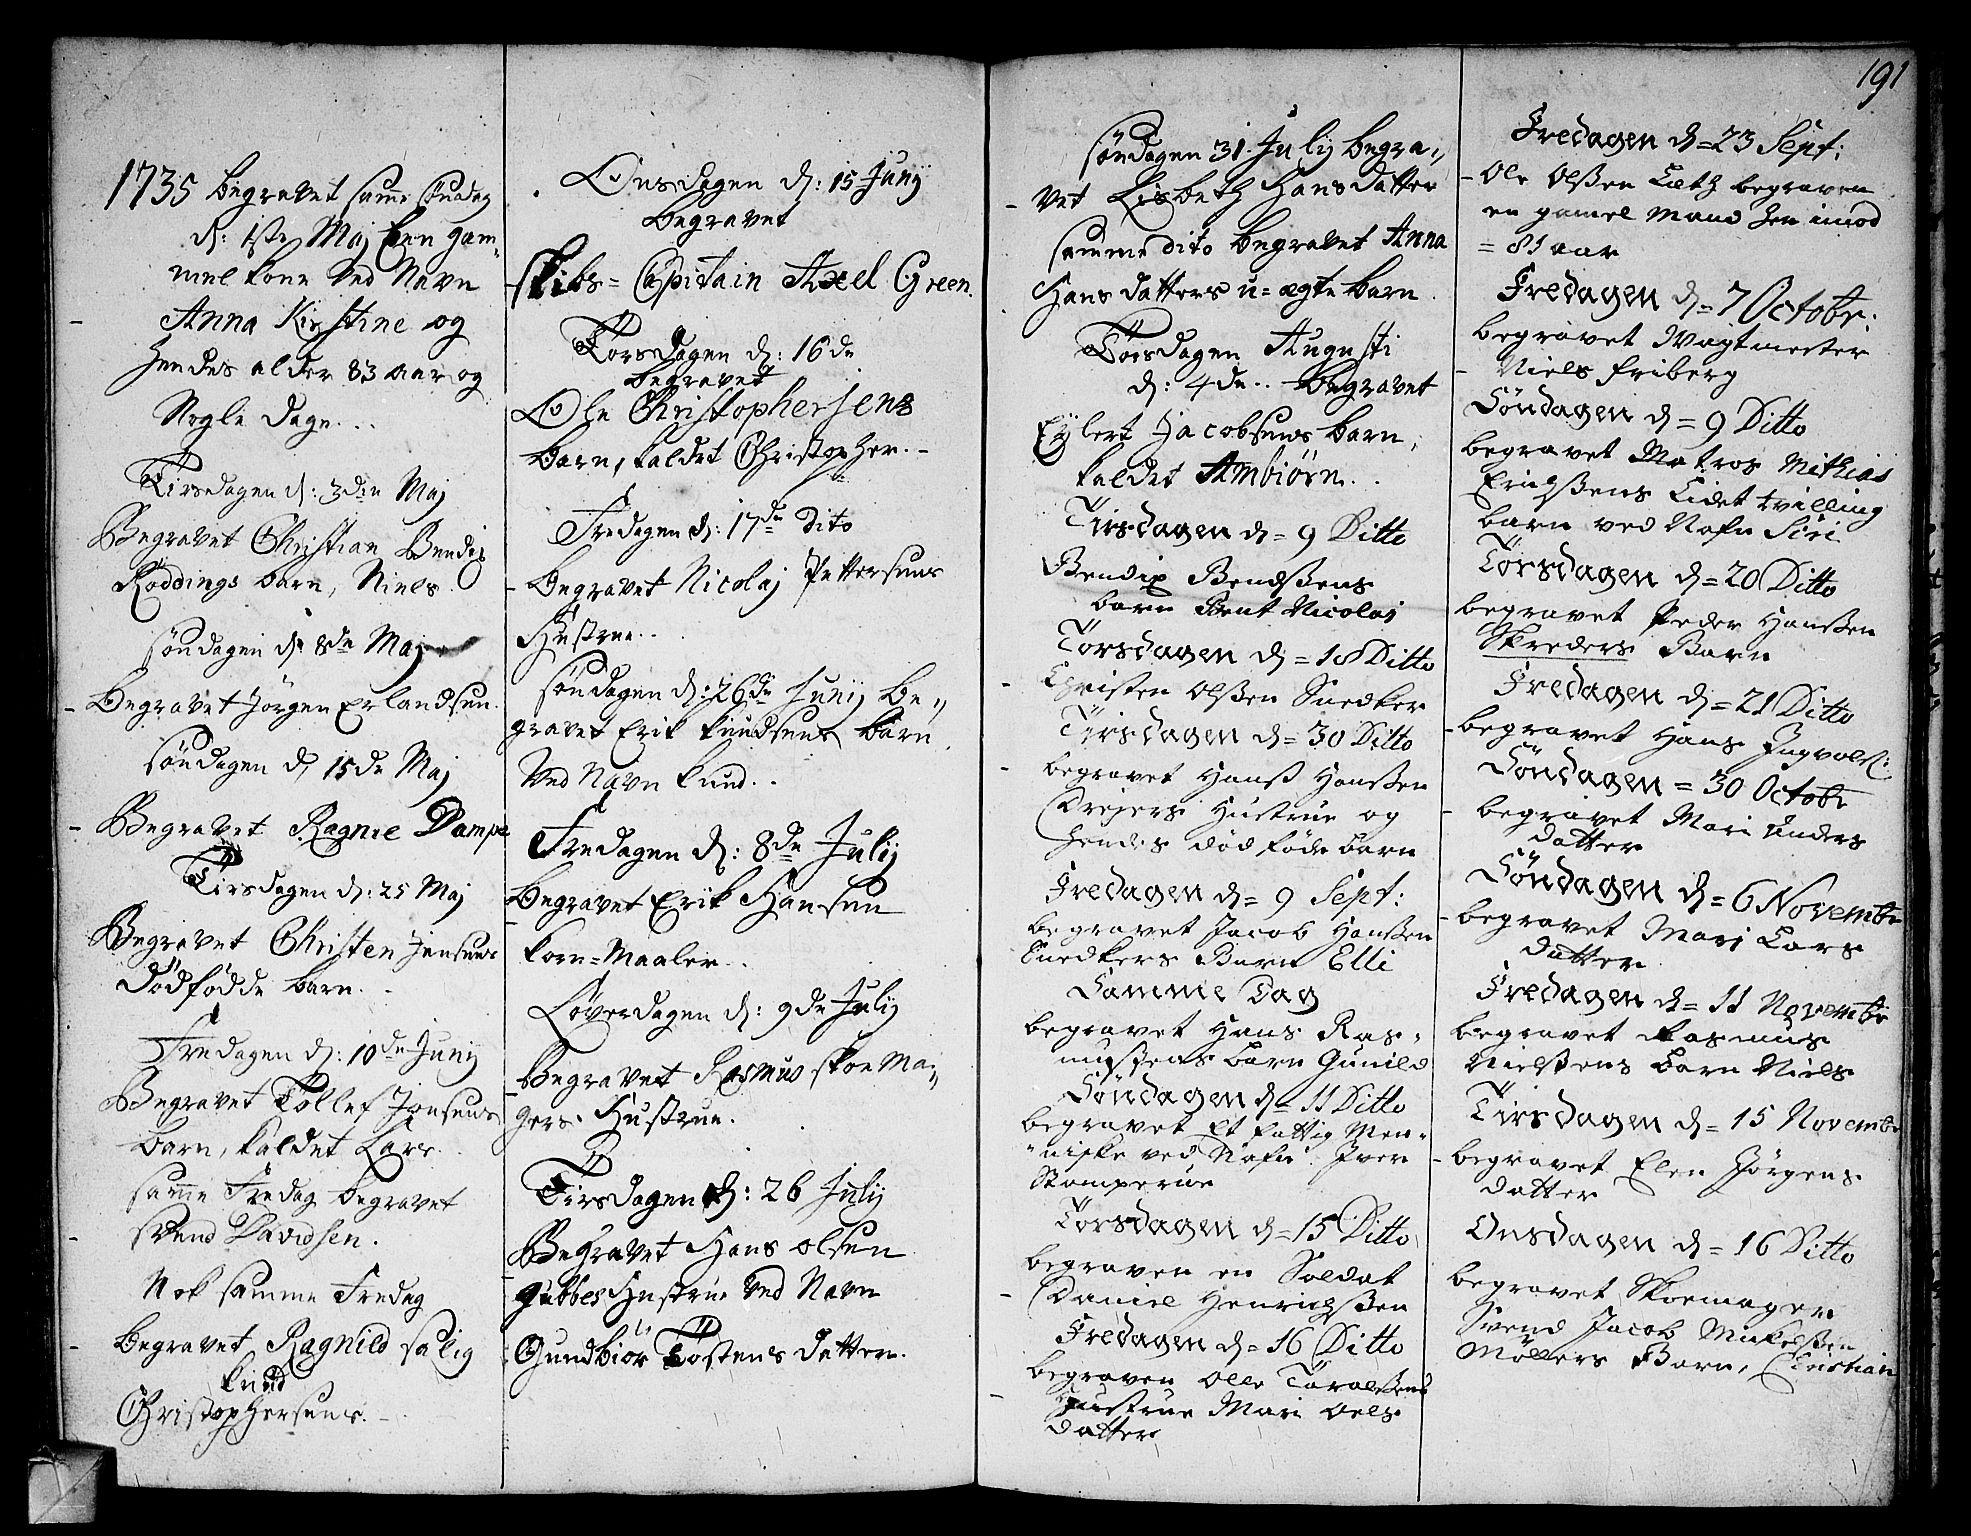 191
1735 begravet samme Søndag
d: 1ste Maj Een gam-
mel kone ved Navn
Anna Kirstine og
hendes alder 83 aar og
Nogle dage...
Tirsdagen d: 3die Maj
Begravet Christian Bendix
Röddings barn, Niels
Søndagen d: 8de Maj
Begravet Jörgen Erlandsen.
Søndagen d: 15de Maj
Begravet Ragne Dampe
Tirsdagen d: 25 Maj
Begravet Christen Jensens
Dödfödde barn..
Fredagen d: 10de Junij
Begravet Tollef Jonsens
barn, kaldet Lars.
samme Fredag begravet
Svend Davidsen.
Nok samme Fredag
Begravet Ragnild salig
knud
Christophersens.-
Onsdagen d: 15 Junij
begravet
Skibs= Capitain Axel Green.
Torsdagen d: 16de
begravet
Ole Christophersens
barn, kaldet Christopher.-
Fredagen d: 17de dito
Begravet Nicolaj Pettersens
Hustrue..
Søndagen d: 26de Junij be„
gravet Erik knudsens barn
ved Navn knud..
Fredagen d: 8de Julij
Begravet Erik Hansen
korn=Maaler..
Löverdagen d: 9de Julij
Begravet Rasmus skoe Ma„
gers Hustrue.
Tirsdagen d: 26 Julij
Begravet Hans olsen
Gubbes Hustrue ved Navn
Gundbiör Tostens datter.
Søndagen 31. Julij begra„
vet Lisbeth Hansdatter
samme dito begravet Anna
Hansdatters u=ægte barn.
Torsdagen Augusti
d: 4de.. begravet
Eylert Jacobsens barn,
kaldet Ambiørn..
Tirsdagen d= 9 Ditto
Bendix Bendßens
barn Bent Nicolai
Torsdagen d= 18 Ditto
Christen Olßen Snedker
Tirsdagen d= 30 Ditto
begravet Hanß Hanßen
Drejers Hustrue og
hendes död föde barn
Fredagen d= 9 Sept:
begravet Jacob Hanßen
Snedkers Barn Elli
Samme Dag
begravet Hans Ras=
mußens barn Gunild
Söndagen d= 11 Ditto
begravet Et fattig Men=
niske ved Nafn Iver
Stamperue
Torsdagen d= 15 Ditto
begraven en Soldat
Daniel Henrichßen
Fredagen d= 16 Ditto
begraven Olle Taralßens
Hustrue Mari Oels
datter
Fredagen d= 23 Sept:
Ole Olßen Læth begraven
en gamel mand hen imod
= 81 aar
Fredagen d= 7 Octobr:
begravet Wagtmester
Niels Friberg
Söndagen d= 9 Ditto
begravet Matros Mathias
Erichßens Lidet tvilling
barn ved Nafn Siri
Torsdagen d= 20 Ditto
begravet Peder Hanßen
Skreders Barn
Fredagen d= 21 Ditto
begravet Hans Ingvolß:
Söndagen = 30 Octobr
begravet Mari Anders
datter
Söndagen d= 6 Novembr
begravet Mari Lars
datter
Fredagen d= 11 Novembr
begravet Rasmus
Nielßens barn Niels
Tirsdagen d= 15 Novembr
begravet Elen Jörgens
datter
Onsdagen d= 16 Ditto
begravet Skoemager
Svend Jacob Mickelßen
Möllers Barn, Christian